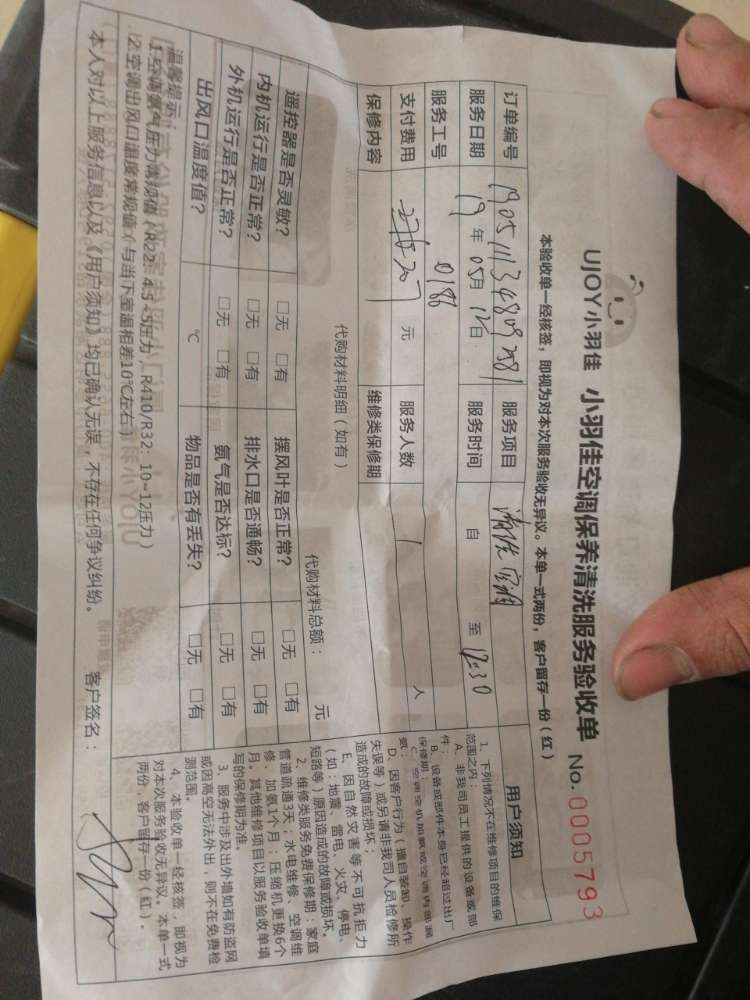 UJOY小羽佳 小羽佳空调保养清洗服务验收单 No. 0005793
本验收单一经核签，即视为对本次服务验收无异议。本单一式两份，客户留存一份(红)
订单编号 服务项目 清洗空调
服务日期 19年 05月 12日 服务时间 自 至 12:30
服务工号 0186
支付费用 元 服务人数 1 人
保修内容 维修类保修期
代购材料明细（如有） 代购材料总额： 元
遥控器是否灵敏? □无 □有 摆风叶是否正常? □无 □有
内机运行是否正常? □无 □有 排水口是否通畅? □无 □有
外机运行是否正常? □无 □有 氨气是否达标? □无 □有
出风口温度值? ℃ 物品是否有丢失? □无 □有
温馨提示：
1.空调氨气压力常规值（R22：4.5~5压力，R410/R32：10~12压力）
2.空调出风口温度常规值（与当下室温相差10℃左右）
本人对以上服务信息以及《用户须知》均已确认无误，不存在任何争议纠纷。 客户签名：
用户须知
1、下列情况不在维修项目的维保
范围之内：
A、非我司员工提供的设备或部
件；
B、设备或部件本身已经超过出厂
保修期；
D、因客户行为（擅自装卸、操作
失误等）或另请非我司人员检修所
造成的故障或损坏；
E、因自然灾害等不可抗拒力
（如：地震、雷电、火灾、停电、
短路等）原因造成的故障或损坏。
2、维修类服务免费保修期：家庭
管道疏通3天；水电维修、空调维
修、加氨1个月；压缩机更换6个
月。其他维修项目以服务验收单填
写的保修期为准。
3、服务中涉及出外墙如有防盗网
或因高空无法外出，则不在免费检
测范围。
4、本验收单一经核签，即视为
对本次服务验收无异议。本单一式
两份，客户留存一份(红)。